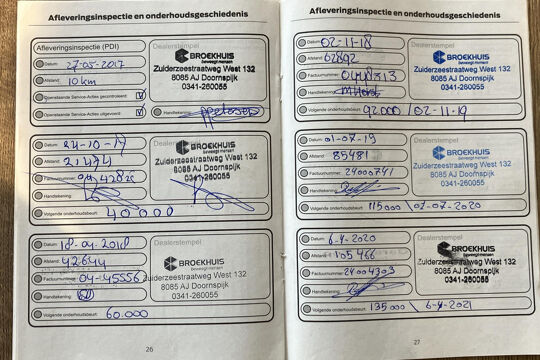 Afleveringsinspectie en onderhoudsgeschiedenis
Afleveringsinspectie (PDI)
Datum: 27-05-2017
Afstand: 10 km
Openstaande Service-Acties gecontroleerd: V
Openstaande Service-Acties uitgevoerd: V
Dealerstempel
BROEKHUIS
beweegt mensen
Zuiderzeestraatweg West 132
8085 AJ Doornspijk
0341-260055
Handtekening:
Datum: 24-10-17
Afstand: 21474
Factuurnummer:
Handtekening:
Volgende onderhoudsbeurt: 40000
BROEKHUIS
beweegt mensen
Zuiderzeestraatweg West 132
8085 AJ Doornspijk
0341-260055
Datum: 18-04-2018
Afstand: 42644
Factuurnummer: 04-45556
Handtekening:
Volgende onderhoudsbeurt: 60.000
Dealerstempel
BROEKHUIS
beweegt mensen
Zuiderzeestraatweg West 132
8085 AJ Doornspijk
0341-260055
26
Afleveringsinspectie en onderhoudsgeschiedenis
Datum: 02-11-18
Afstand: 62892
Factuurnummer:
Handtekening:
Volgende onderhoudsbeurt: 92000 / 02-11-19
Dealerstempel
BROEKHUIS
beweegt mensen
Zuiderzeestraatweg West 132
8085 AJ Doornspijk
0341-260055
Datum: 01-07-19
Afstand: 85481
Factuurnummer: 24000741
Handtekening:
Volgende onderhoudsbeurt: 115000 / 01-07-2020
Dealerstempel
BROEKHUIS
beweegt mensen
Zuiderzeestraatweg West 132
8085 AJ Doornspijk
0341-260055
Datum: 6-4-2020
Afstand: 105466
Factuurnummer: 24004303
Handtekening:
Volgende onderhoudsbeurt: 135000 \ 6-4-2021
Dealerstempel
BROEKHUIS
beweegt mensen
Zuiderzeestraatweg West 132
8085 AJ Doornspijk
0341-260055
27